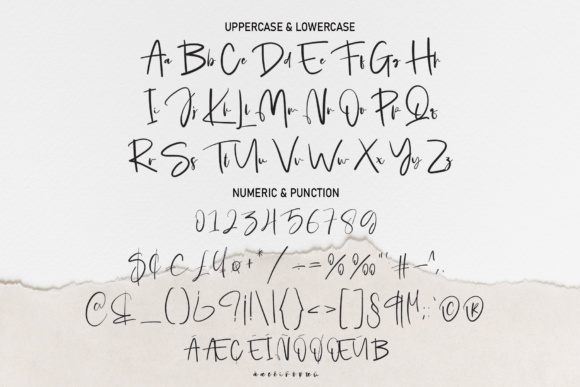 UPPERCASE & LOWERCASE
Aa Bb Cc Dd Ee Ff Gg Hh
Ii Jj Kk Ll Mm Nn Oo Pp Qq
Rr Ss Tt Uu Vv Ww Xx Yy Zz
NUMERIC & PUNCTION
0 1 2 3 4 5 6 7 8 9
$ ¢ € £ ¤ + * / ÷ = % ‰ " ' # – ^ , .
@ & _ ( ) ¿ ? ¡ ! \ | { } < > [ ] § ¶ M ; : © ®